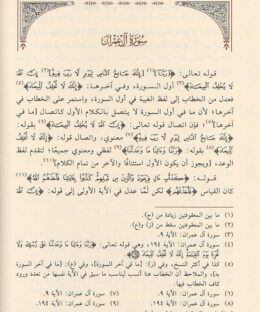 سورة آل عمران
قوله تعالى: ﴿رَبَّنَا﴾(١) ﴿إِنَّكَ جَامِعُ النَّاسِ لِيَوْمٍ لَا رَيْبَ فِيهِ﴾(٢) إِنَّ اللَّهَ
لَا يُخْلِفُ الْمِيعَادَ﴾(٣) أول السورة، وفي آخرها: ﴿إِنَّكَ لَا تُخْلِفُ الْمِيعَادَ﴾(٤)
فعدل من الخطاب إلى لفظ الغيبة في أول السورة، واستمر على الخطاب في
آخرها؛ لأن ما في أول السورة لا يتصل بالكلام الأول كاتصال [ما في
آخرها](٥)، فإن اتصال قوله تعالى: ﴿إِنَّ اللَّهَ لَا يُخْلِفُ الْمِيعَادَ﴾(٦) بقوله:
﴿إِنَّكَ جَامِعُ النَّاسِ لِيَوْمٍ لَا رَيْبَ فِيهِ﴾(٧) معنوي، واتصال قوله: ﴿إِنَّكَ لَا تُخْلِفُ
الْمِيعَادَ﴾(٨) بقوله: ﴿رَبَّنَا وَآتِنَا مَا وَعَدْتَنَا﴾(٩) لفظي ومعنوي جميعًا؛ لتقدم لفظ
الوعد، [ويجوز أن يكون الأول استئنافًا والآخر من تمام الكلام](١٠).
قوله: ﴿كَدَأْبِ آلِ فِرْعَوْنَ وَالَّذِينَ مِنْ قَبْلِهِمْ كَذَّبُوا بِآيَاتِنَا فَأَخَذَهُمُ اللَّهُ﴾(١١)
كان القياس ﴿فَأَخَذْنَاهُمْ﴾ لكن لمّا عدل في الآية الأولى إلى قوله: ﴿إِنَّ اللَّهَ
(١) ما بين المعقوفتين زيادة من (ج).
(٢) ما بين المعقوفتين سقط من (ز) و(ع).
(٣) سورة آل عمران: الآية ٩.
(٤) سورة آل عمران: الآية ١٩٤، وهي قوله تعالى: ﴿رَبَّنَا وَآتِنَا مَا وَعَدْتَنَا عَلَى رُسُلِكَ وَلَا
تُخْزِنَا يَوْمَ الْقِيَامَةِ إِنَّكَ لَا تُخْلِفُ الْمِيعَادَ﴾
(٦) سورة آل عمران: الآية ٩.
(٧) سورة آل عمران: الآية ٩.
(٨) سورة آل عمران: الآية ١٩٤.
(٩) سورة آل عمران: الآية ١٩٤.